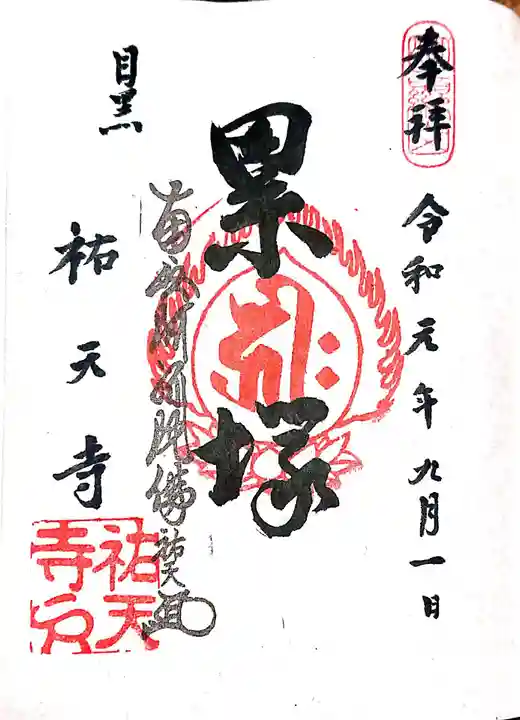 奉拝
令和元年九月一日
累塚
南無阿弥陀佛
祐天
目黒
祐天寺
祐天
寺印